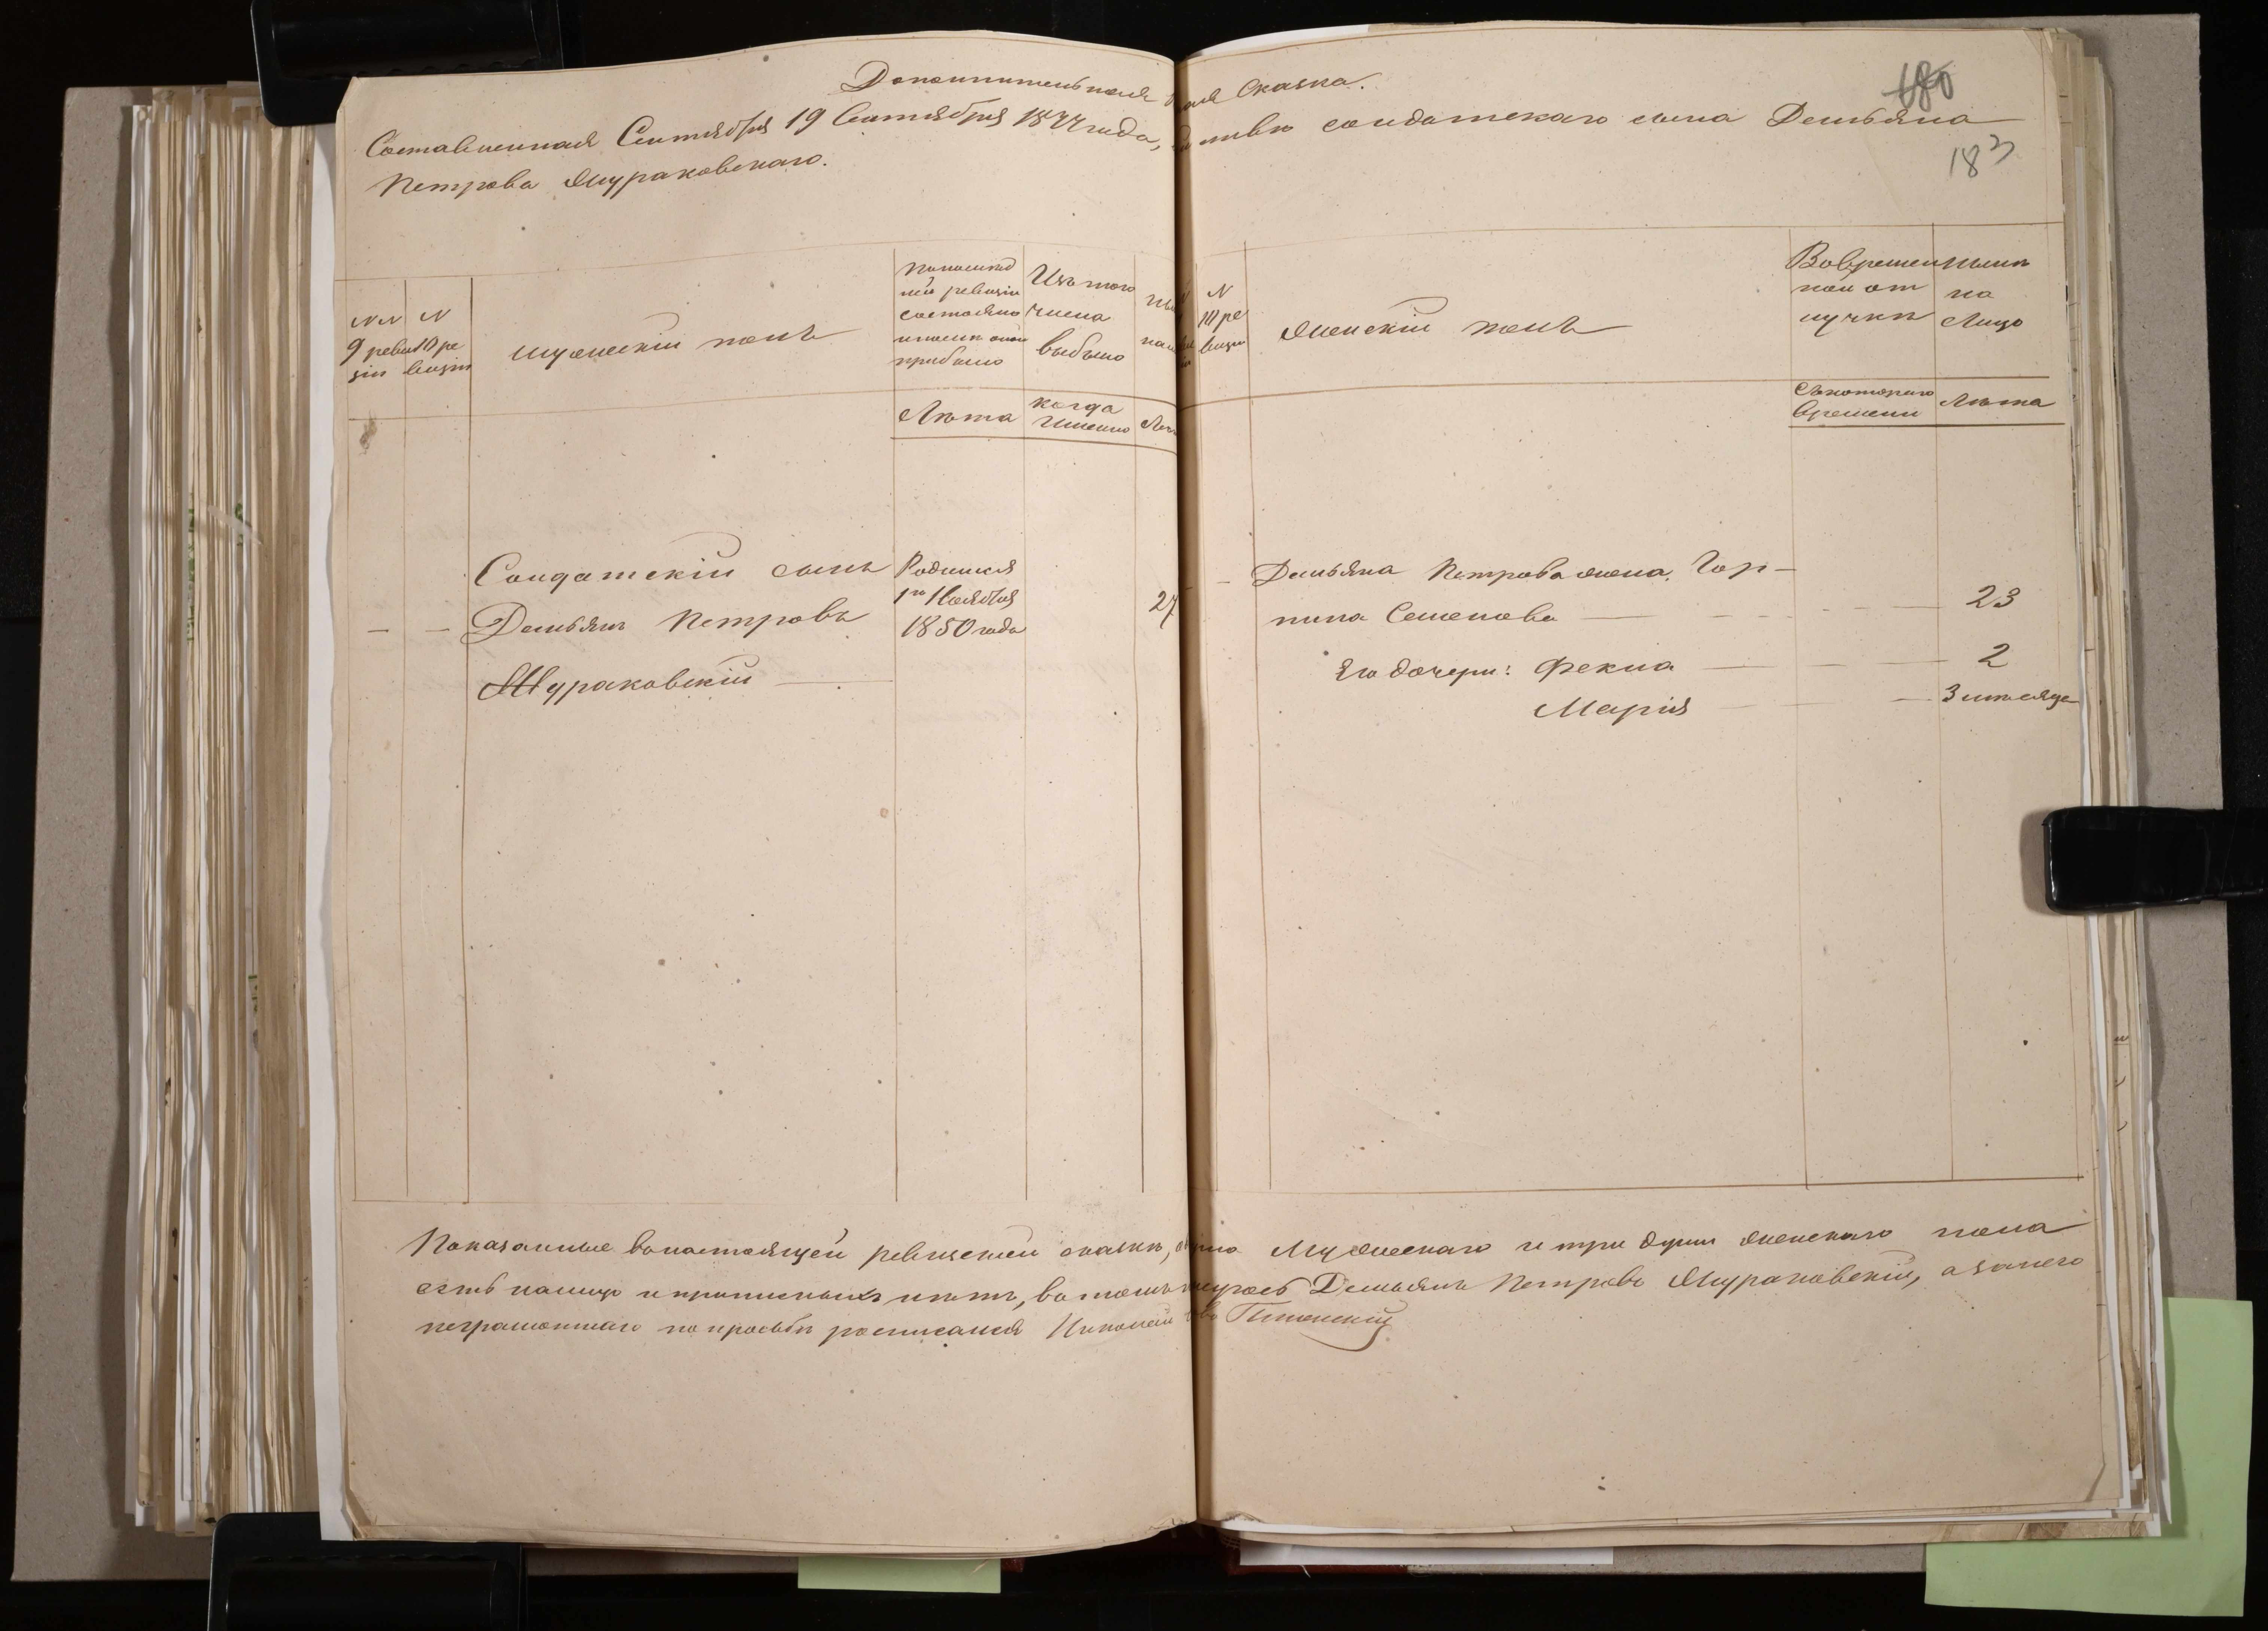 Дополнительная Сказка.
680
Составленная Сентября 19 Сентября 1877 года, солдатскаго сына Демьяна
Петрова Жураковскаго.
183
№№ 9 ревизіи
№ 10 ревизіи
мужескій полъ
По последней ревизіи состояло и после оной прибыло
Изъ того числа выбыло
Лѣта
когда именно
№ 10 ревизіи
Женскій полъ
Во временной отлучкѣ
ныне на лицо
Съ котораго времени
Лѣта
Солдатскій сынъ
Демьянъ Петровъ
Жураковскій
Родился
1го Ноября
1850 года
27
Демьяна Петрова жена, Гор-
пина Семенова
23
Его дочери: Фекла
2
Марія
3 месяца
Показанные в настоящей ревизской сказке, Мужескаго и три души женскаго пола
есть налицо и прописныхъ нетъ, в томъ Демьянъ Петровъ Жураковскій, а за него
неграмотнаго по просьбе росписался Николай